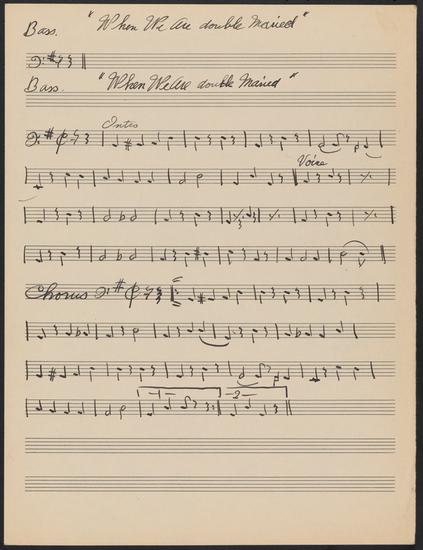 Bass. "When We Are double Maried"
Bass. "When We Are double Maried"
Intro
Voice
Chorus
-1- -2-